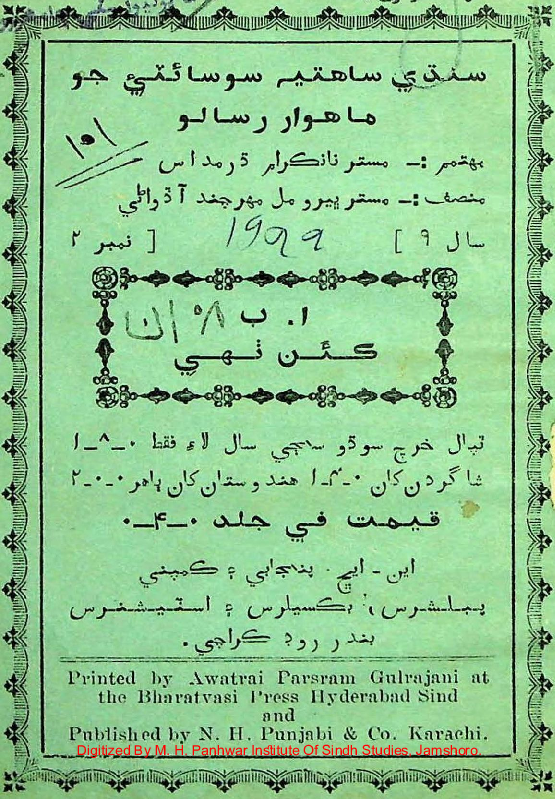 سنڌي ساهتيہ سوسائٽيءَ جو
ماهوار رسالو
۱۵۱
مهتمم :- مستر نانڪرام ڌرمداس
منصف :- مستر ڀيرو مل مهرچند آڏواڻي
سال ۹ ] ۱۹۲۲ [ نمبر ۲
ا. ب
ڪئن ٺهي
ٽپال خرچ سوڌو سڄي سال لاءِ فقط ۰-۸-۱
شاگردن کان ۰-۴-۱ هندوستان کان ٻاهر ۰-۰-۲
قيمت في جلد ۰-۴-۰
اين - ايڇ . پنجابي ۽ ڪمپني
پبلشرس، بڪسيلرس ۽ اسٽيشنرس
بندر روڊ ڪراچي.
Printed by Awatrai Parsram Gulrajani at
the Bharatvasi Press Hyderabad Sind
and
Published by N. H. Punjabi & Co. Karachi.
Digitized By M. H. Panhwar Institute Of Sindh Studies, Jamshoro.